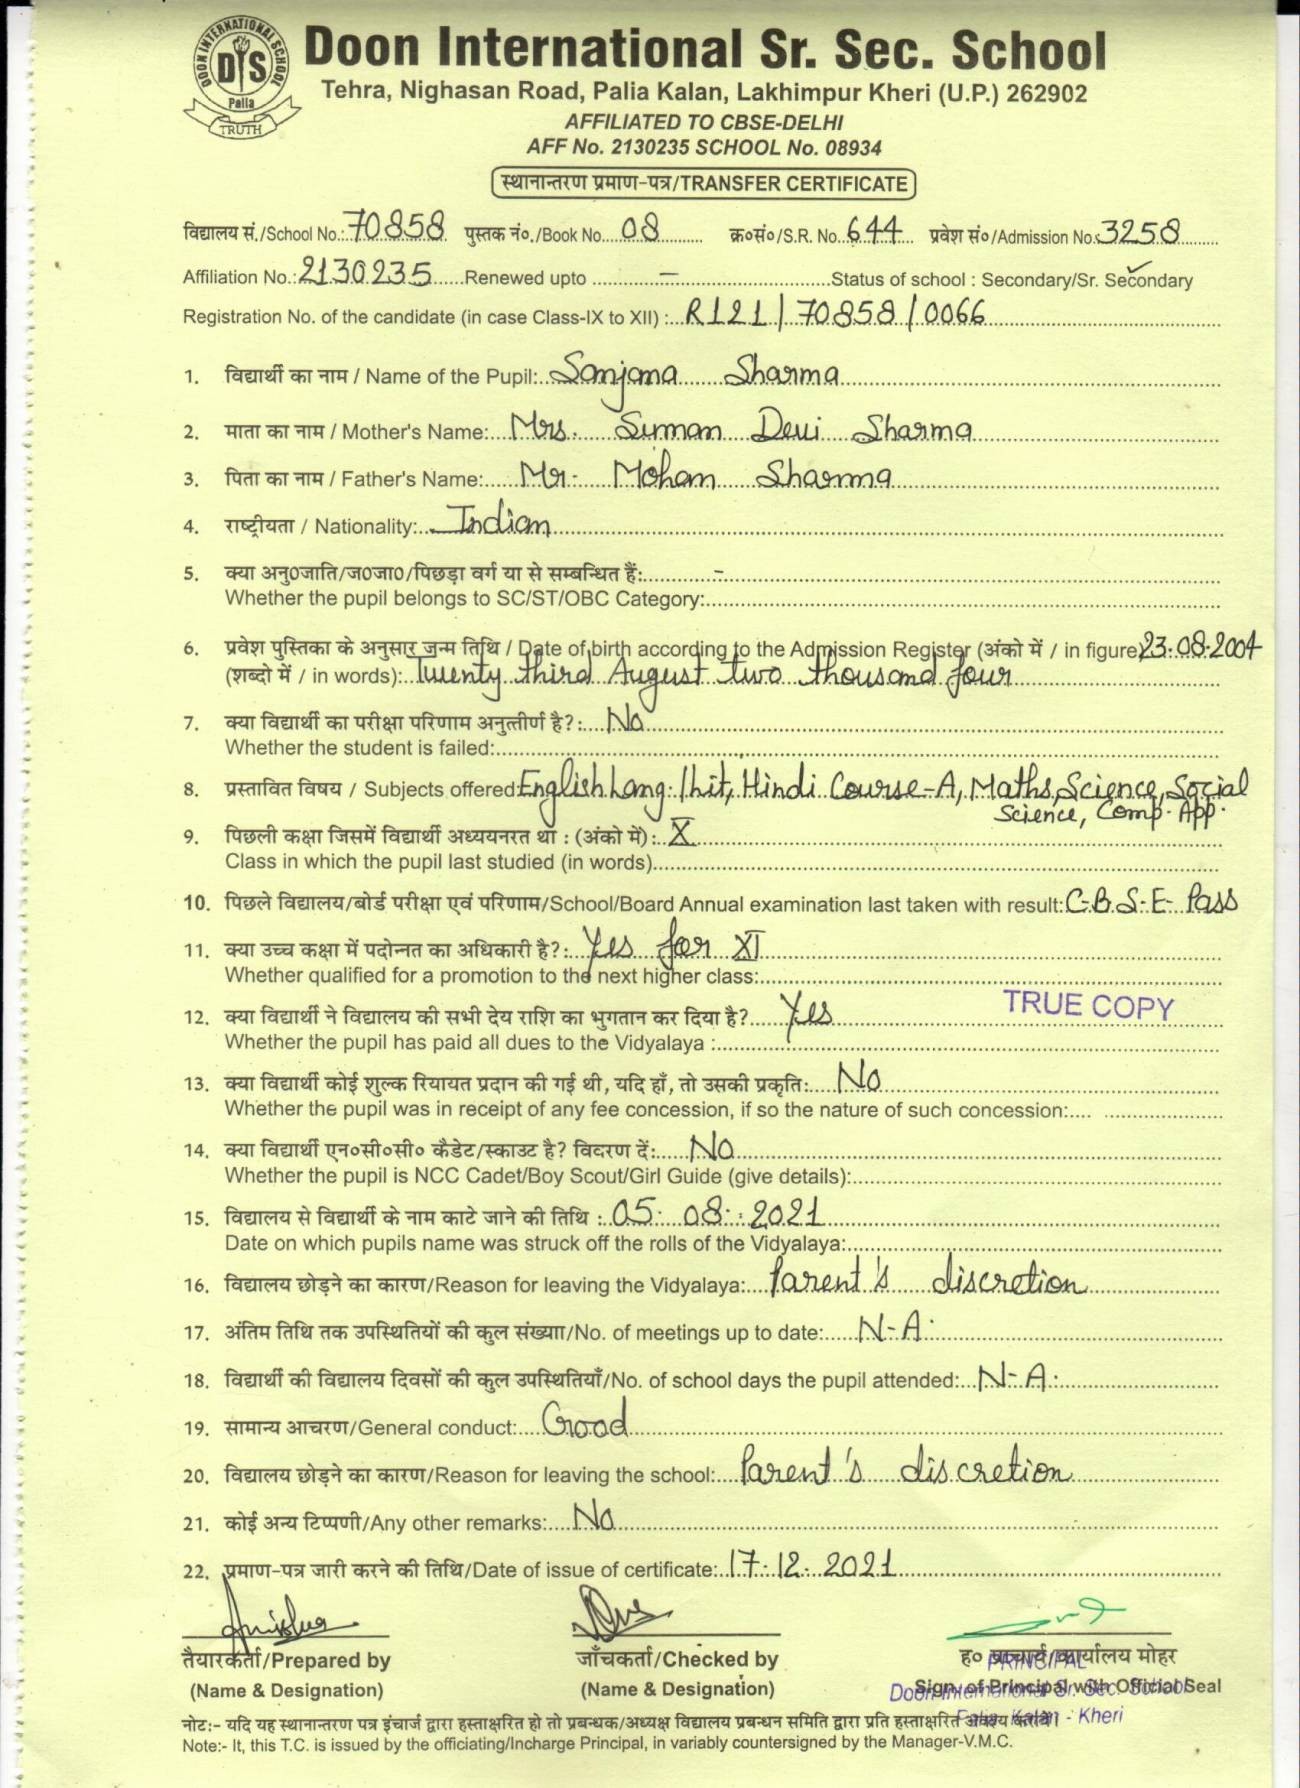 DOON INTERNATIONAL SCHOOL
DIS
Palia
TRUTH
Doon International Sr. Sec. School
Tehra, Nighasan Road, Palia Kalan, Lakhimpur Kheri (U.P.) 262902
AFFILIATED TO CBSE-DELHI
AFF No. 2130235 SCHOOL No. 08934
स्थानान्तरण प्रमाण-पत्र/TRANSFER CERTIFICATE
विद्यालय सं./School No.: 70858 पुस्तक नं०./Book No. 08 क्र०सं०/S.R. No. 644 प्रवेश सं०/Admission No. 3258
Affiliation No.: 2130235 Renewed upto – Status of school : Secondary/Sr. Secondary
Registration No. of the candidate (in case Class-IX to XII) : R121/70858/0066
1. विद्यार्थी का नाम / Name of the Pupil: Sanjana Sharma
2. माता का नाम / Mother's Name: Mrs. Suman Devi Sharma
3. पिता का नाम / Father's Name: Mr. Mohan Sharma
4. राष्ट्रीयता / Nationality: Indian
5. क्या अनु0जाति/ज0जा0/पिछड़ा वर्ग या से सम्बन्धित हैं: –
Whether the pupil belongs to SC/ST/OBC Category:
6. प्रवेश पुस्तिका के अनुसार जन्म तिथि / Date of birth according to the Admission Register (अंको में / in figure) 23-08-2004
(शब्दो में / in words): Twenty third August two thousand four
7. क्या विद्यार्थी का परीक्षा परिणाम अनुत्तीर्ण है?: No
Whether the student is failed:
8. प्रस्तावित विषय / Subjects offered: English Lang. / Lit, Hindi Course-A, Maths, Science, Social
Science, Comp. App.
9. पिछली कक्षा जिसमें विद्यार्थी अध्ययनरत था : (अंको में): X
Class in which the pupil last studied (in words)
10. पिछले विद्यालय/बोर्ड परीक्षा एवं परिणाम/School/Board Annual examination last taken with result: C-B-S-E- Pass
11. क्या उच्च कक्षा में पदोन्नत का अधिकारी है?: Yes for XI
Whether qualified for a promotion to the next higher class:
TRUE COPY
12. क्या विद्यार्थी ने विद्यालय की सभी देय राशि का भुगतान कर दिया है? Yes
Whether the pupil has paid all dues to the Vidyalaya :
13. क्या विद्यार्थी कोई शुल्क रियायत प्रदान की गई थी, यदि हाँ, तो उसकी प्रकृति: No
Whether the pupil was in receipt of any fee concession, if so the nature of such concession:
14. क्या विद्यार्थी एन०सी०सी० कैडेट/स्काउट है? विवरण दें: No
Whether the pupil is NCC Cadet/Boy Scout/Girl Guide (give details):
15. विद्यालय से विद्यार्थी के नाम काटे जाने की तिथि : 05. 08. 2021
Date on which pupils name was struck off the rolls of the Vidyalaya:
16. विद्यालय छोड़ने का कारण/Reason for leaving the Vidyalaya: Parent's discretion
17. अंतिम तिथि तक उपस्थितियों की कुल संख्याा/No. of meetings up to date: N-A.
18. विद्यार्थी की विद्यालय दिवसों की कुल उपस्थितियाँ/No. of school days the pupil attended: N-A.
19. सामान्य आचरण/General conduct: Good
20. विद्यालय छोड़ने का कारण/Reason for leaving the school: Parent's discretion
21. कोई अन्य टिप्पणी/Any other remarks: No
22. प्रमाण-पत्र जारी करने की तिथि/Date of issue of certificate: 17.12.2021
तैयारकर्ता/Prepared by जाँचकर्ता/Checked by ह० प्राचार्य/कार्यालय मोहर
PRINCIPAL
(Name & Designation) (Name & Designation) Sign. of Principal with Official Seal
Doon International Sr. Sec. School
Palia Kalan - Kheri
नोट:- यदि यह स्थानान्तरण पत्र इंचार्ज द्वारा हस्ताक्षरित हो तो प्रबन्धक/अध्यक्ष विद्यालय प्रबन्धन समिति द्वारा प्रति हस्ताक्षरित अवश्य करायें।
Note:- It, this T.C. is issued by the officiating/Incharge Principal, in variably countersigned by the Manager-V.M.C.